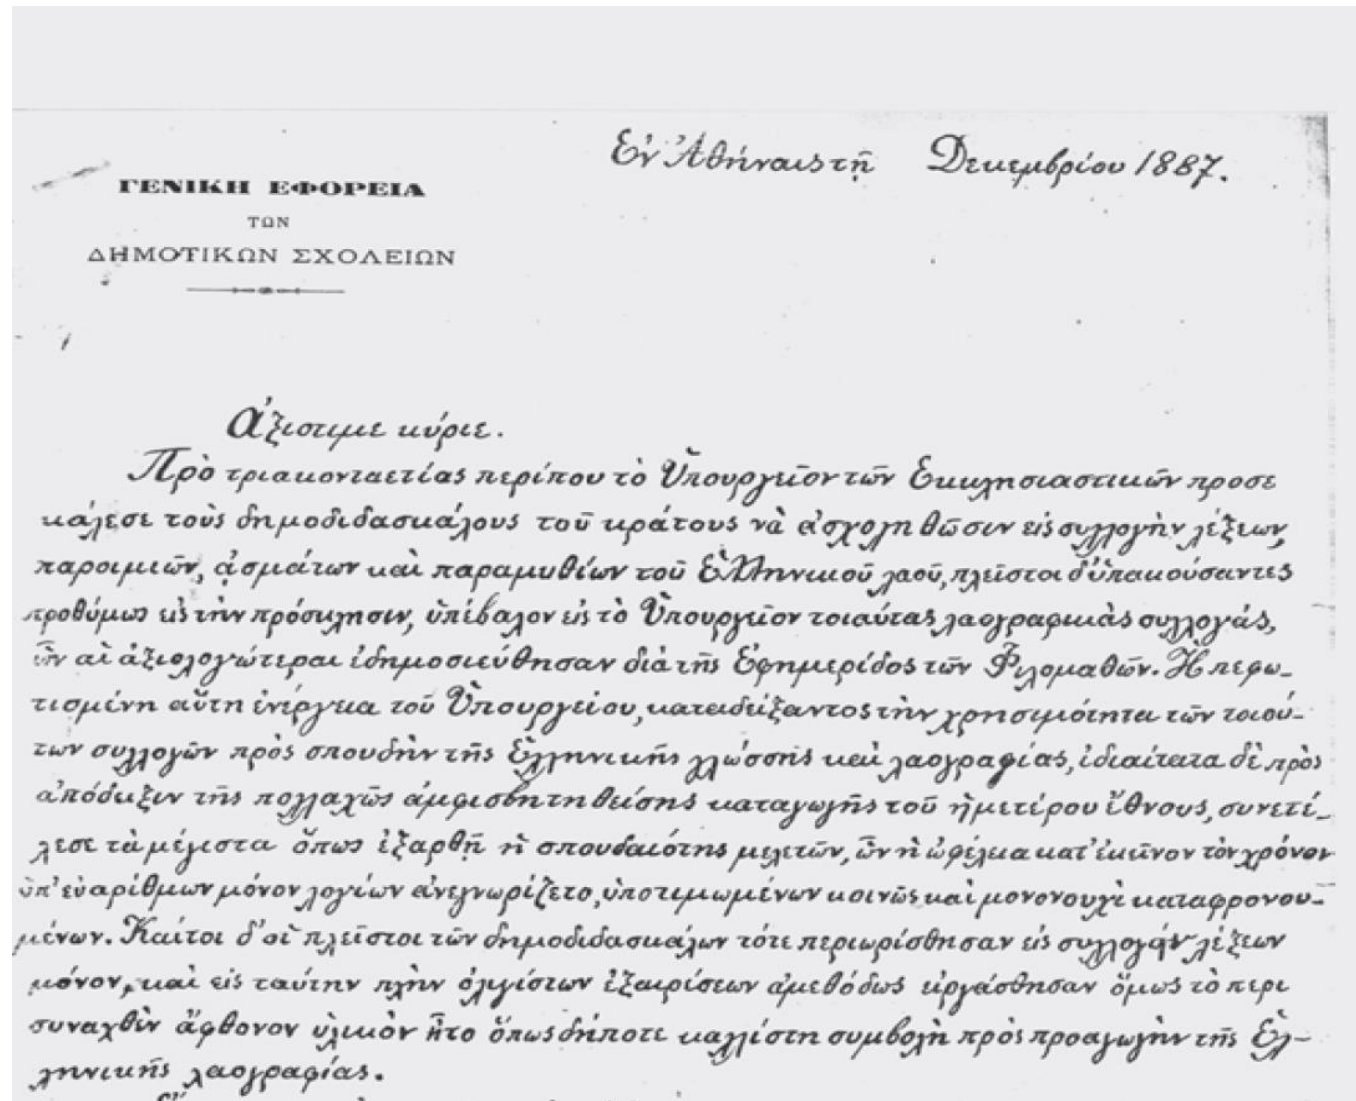 Ἐν Ἀθήναις τῇ Δεκεμβρίου 1887.
ΓΕΝΙΚΗ ΕΦΟΡΕΙΑ
ΤΩΝ
ΔΗΜΟΤΙΚΩΝ ΣΧΟΛΕΙΩΝ
Ἀξιότιμε κύριε.
Πρὸ τριακονταετίας περίπου τὸ Ὑπουργεῖον τῶν Ἐκκλησιαστικῶν προσε
κάλεσε τοὺς δημοδιδασκάλους τοῦ κράτους νὰ ἀσχοληθῶσιν εἰς συλλογὴν λέξεων,
παροιμιῶν, ᾀσμάτων καὶ παραμυθίων τοῦ Ἑλληνικοῦ λαοῦ, πλεῖστοι δ' ὑπακούσαντες
προθύμως εἰς τὴν πρόσκλησιν, ὑπέβαλον εἰς τὸ Ὑπουργεῖον τοιαύτας λαογραφικὰς συλλογάς,
ὧν αἱ ἀξιολογώτεραι ἐδημοσιεύθησαν διὰ τῆς Ἐφημερίδος τῶν Φιλομαθῶν. Ἡ πεφω-
τισμένη αὕτη ἐνέργεια τοῦ Ὑπουργείου, καταδείξαντος τὴν χρησιμότητα τῶν τοιού-
των συλλογῶν πρὸς σπουδὴν τῆς Ἑλληνικῆς γλώσσης καὶ λαογραφίας, ἰδιαίτατα δὲ πρὸς
ἀπόδειξιν τῆς πολλαχῶς ἀμφισβητηθείσης καταγωγῆς τοῦ ἡμετέρου ἔθνους, συνετέ-
λεσε τὰ μέγιστα ὅπως ἐξαρθῇ ἡ σπουδαιότης μελετῶν, ὧν ἡ ὠφέλεια κατ' ἐκεῖνον τὸν χρόνον
ὑπ' εὐαρίθμων μόνον λογίων ἀνεγνωρίζετο, ὑποτιμωμένων κοινῶς καὶ μονονουχὶ καταφρονου-
μένων. Καίτοι δ' οἱ πλεῖστοι τῶν δημοδιδασκάλων τότε περιωρίσθησαν εἰς συλλογὴν λέξεων
μόνον, καὶ εἰς ταύτην πλὴν ὀλιγίστων ἐξαιρέσεων ἀμεθόδως εἰργάσθησαν ὅμως τὸ περι
συναχθὲν ἄφθονον ὑλικὸν ἦτο ὅπως δήποτε καλλίστη συμβολὴ πρὸς προαγωγὴν τῆς Ἑλ-
ληνικῆς λαογραφίας.